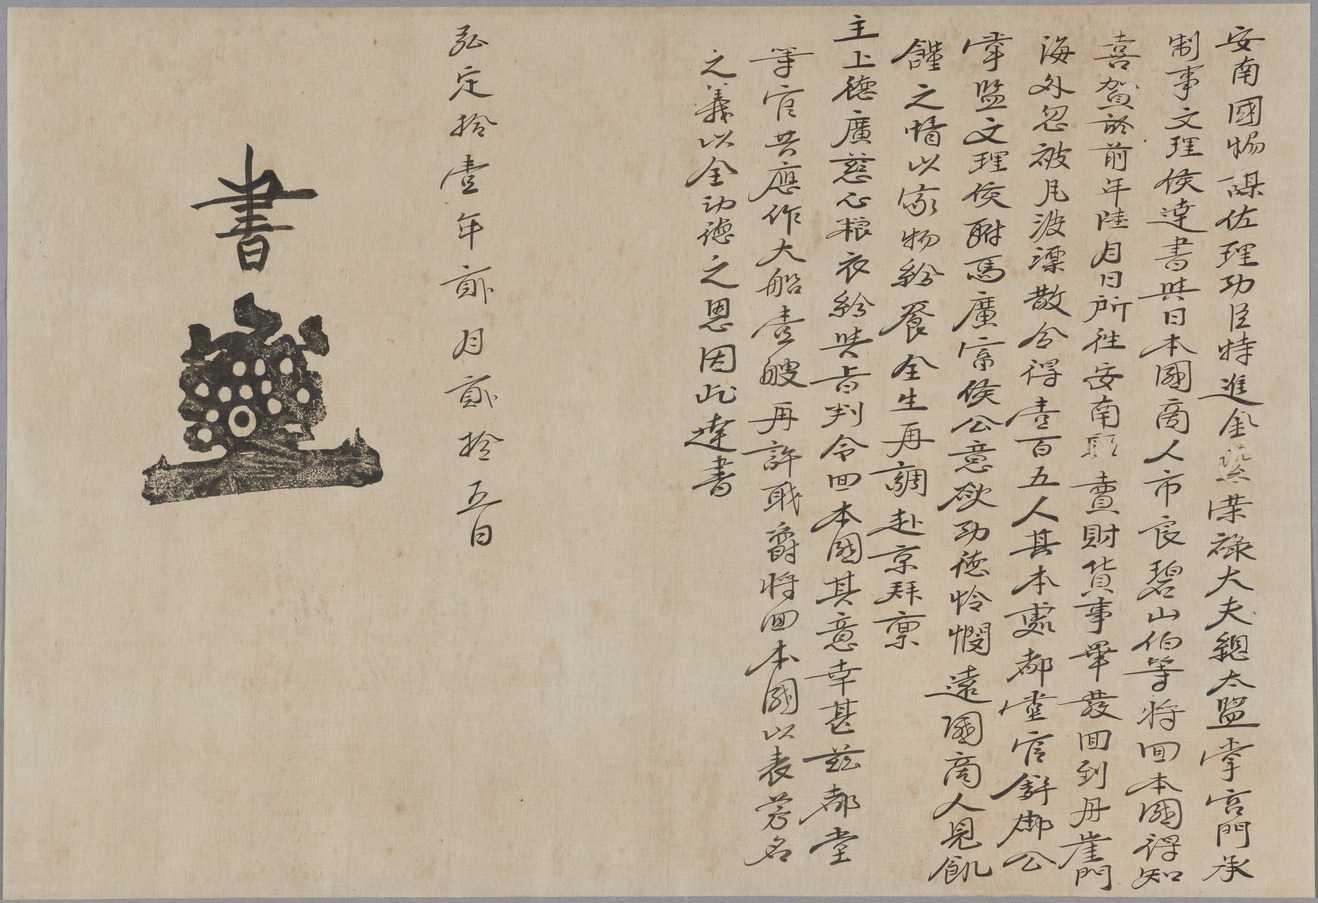 安南國惕謀佐理功臣特進金紫榮祿大夫總太監掌宮門承
制事文理侯達書與日本國商人市良碧山伯等將回本國得知
喜駕於前年陸月日所往安南耴賣財貨事畢發回到丹崖門
海外忽被凡波漂散今得壹百五人其本處都堂官舒郡公
掌監文理侯駙馬廣富侯公意欲功德怜憫遠國商人見飢
饉之情以家物給養全生再調赴京拜禀
主上德廣慈心粮衣給與旨判令回本國其意幸甚茲都堂
等官共應作大船壹艘再許職爵將回本國以表芳名
之義以全功德之恩因此達書
弘定拾壹年貳月貳拾五日
書